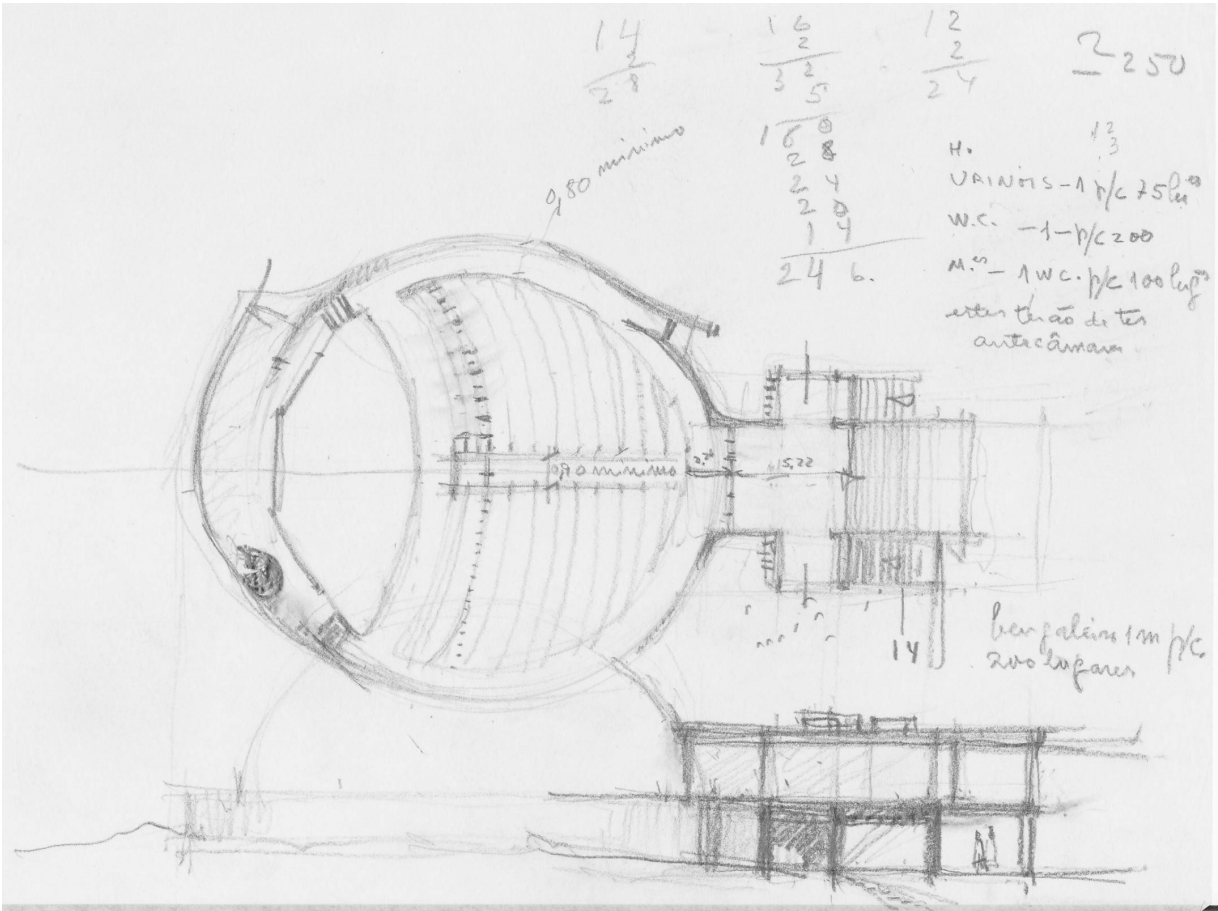 14
2
28
16
2
32
5
160
28
24
20
14
246.
12
2
24
2250
12
3
H.
URINOIS - 1 p/c 75 lug
W.C. - 1 - p/c 200
M.es - 1 WC. p/c 100 lug
estes terão de ter
antecâmara.
0,80 minimo
0,90 minimo
5,22
14
bengaleiro 1m p/c.
200 lugares